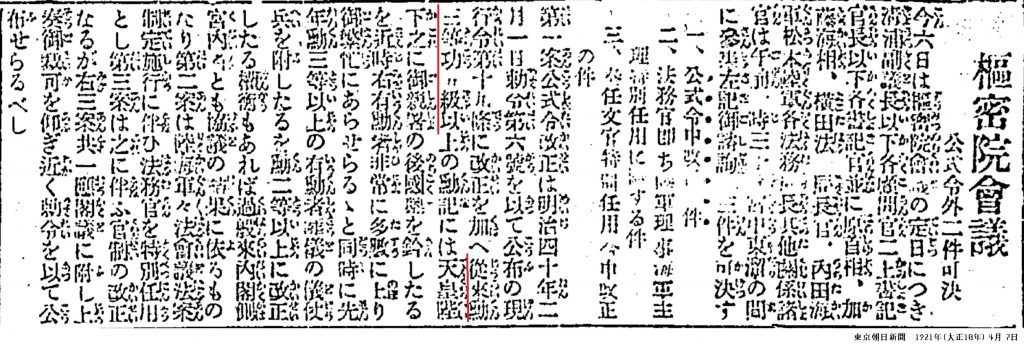 樞密院會議
公式令外二件可決
今六日は樞密院會議の定日につき
淸浦副議長以下各顧問官二上書記
官長以下各書記官並に原首相、加
藤海相、橫田法 局長官、內田海
軍松本陸軍各法務 長其他關係諸
官は午前 時三 宮中東溜の間
に參集左記御諮詢 三件を可決す
一、公式令中改 件
二、法務官卽ち 軍理事海軍主
理特別任用に する件
三、奏任文官特別任用令中改正
の件
第一案公式令改正は明治四十年二
月一日勅令第六號を以て公布の現
行令第十九條に改正を加へ從來勳
三等功 級以上の勳記には天皇陛
下之に御親署の後國璽を鈐したる
を近時右有勳者非常に多數に上り
御繁忙にあらせらるゝと同時に先
年勳三等以上の有勳者葬儀の儀仗
兵を附したるを勳二等以上に改正
したる權衡もあれば過般來內閣側
宮內省とも協議の結果に依るもの
たり第二案は陸海軍々法會議法案
制定施行に伴ひ法務官を特別任用
とし第三案は之に伴ふ官制の改正
なるが右三案共一應閣議に附し上
奏御裁可を仰ぎ近く勅令を以て公
布せらるべし
東京朝日新聞 1921年(大正10年) 4月 7日